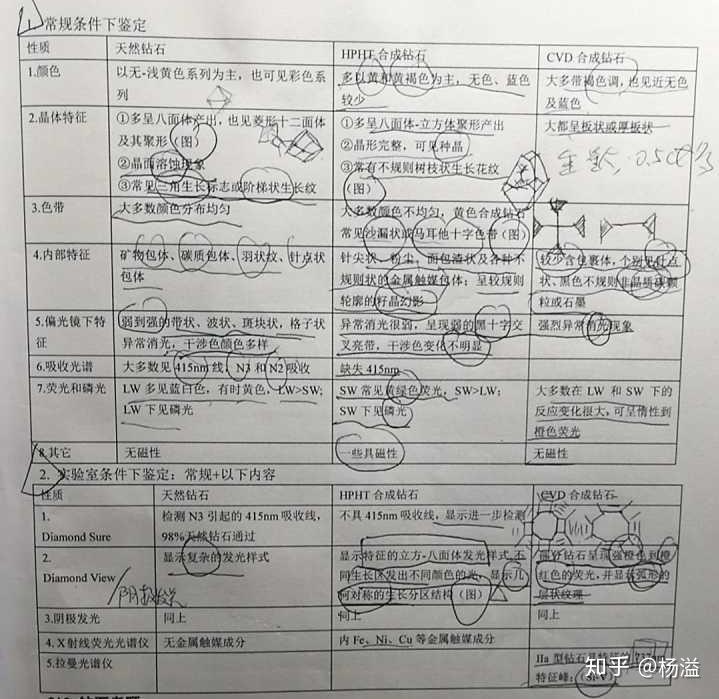 1. 常规条件下鉴定
性质 天然钻石 HPHT 合成钻石 CVD 合成钻石
1.颜色 以无-浅黄色系列为主，也可见彩色系 多以黄和黄褐色为主，无色、蓝色 大多带褐色调，也见近无色
列 较少 及蓝色
2.晶体特征 ①多呈八面体产出，也见菱形十二面体 ①多呈八面体-立方体聚形产出 大都呈板状或厚板状
及其聚形（图） ②晶形完整，可见种晶
②晶面溶蚀现象 ③常有不规则树枝状生长花纹
③常见三角生长标志或阶梯状生长纹 （图）
3.色带 大多数颜色分布均匀 大多数颜色不均匀，黄色合成钻石
常见沙漏状或马耳他十字色带（图）
4.内部特征 矿物包体、碳质包体、羽状纹、针点状 针尖状、粉尘，面包渣状及各种不 较少含包裹体，个别见针点
包体 规则状的金属触媒包体；呈较规则 状、黑色不规则非晶质碳颗
轮廓的籽晶幻影 粒或石墨
5.偏光镜下特 弱到强的带状、波状、斑块状，格子状 异常消光很弱，呈现弱的黑十字交 强烈异常消光现象
征 异常消光，干涉色颜色多样 叉亮带，干涉色变化不明显
6.吸收光谱 大多数见 415nm 线，N3 和 N2 吸收 缺失 415nm
7.荧光和磷光 LW 多见蓝白色，有时黄色、LW>SW; SW 常见黄绿色荧光，SW>LW; 大多数在 LW 和 SW 下的
LW 下见磷光 SW 下见磷光 反应变化很大，可呈惰性到
橙色荧光
8.其它 无磁性 一些具磁性 无磁性
2. 实验室条件下鉴定：常规+以下内容
性质 天然钻石 HPHT 合成钻石 CVD 合成钻石
1. 检测 N3 引起的 415nm 吸收线， 不具 415nm 吸收线，显示进一步检测
Diamond Sure 98%天然钻石通过
2. 显示复杂的发光样式 显示特征的立方-八面体发光样式，不 部分钻石呈现强橙色到橙
Diamond View 同生长区发出不同颜色的光，显示几 红色的荧光，并显示弧形的
何对称的生长分区结构（图） 层状纹理
3.阴极发光 同上 同上 同上
4. X 射线荧光光谱仪 无金属触媒成分 内 Fe、Ni、Cu 等金属触媒成分
5.拉曼光谱仪 IIa 型钻石具特征的 737nm
特征峰：（Si-V）
知乎 @杨溢